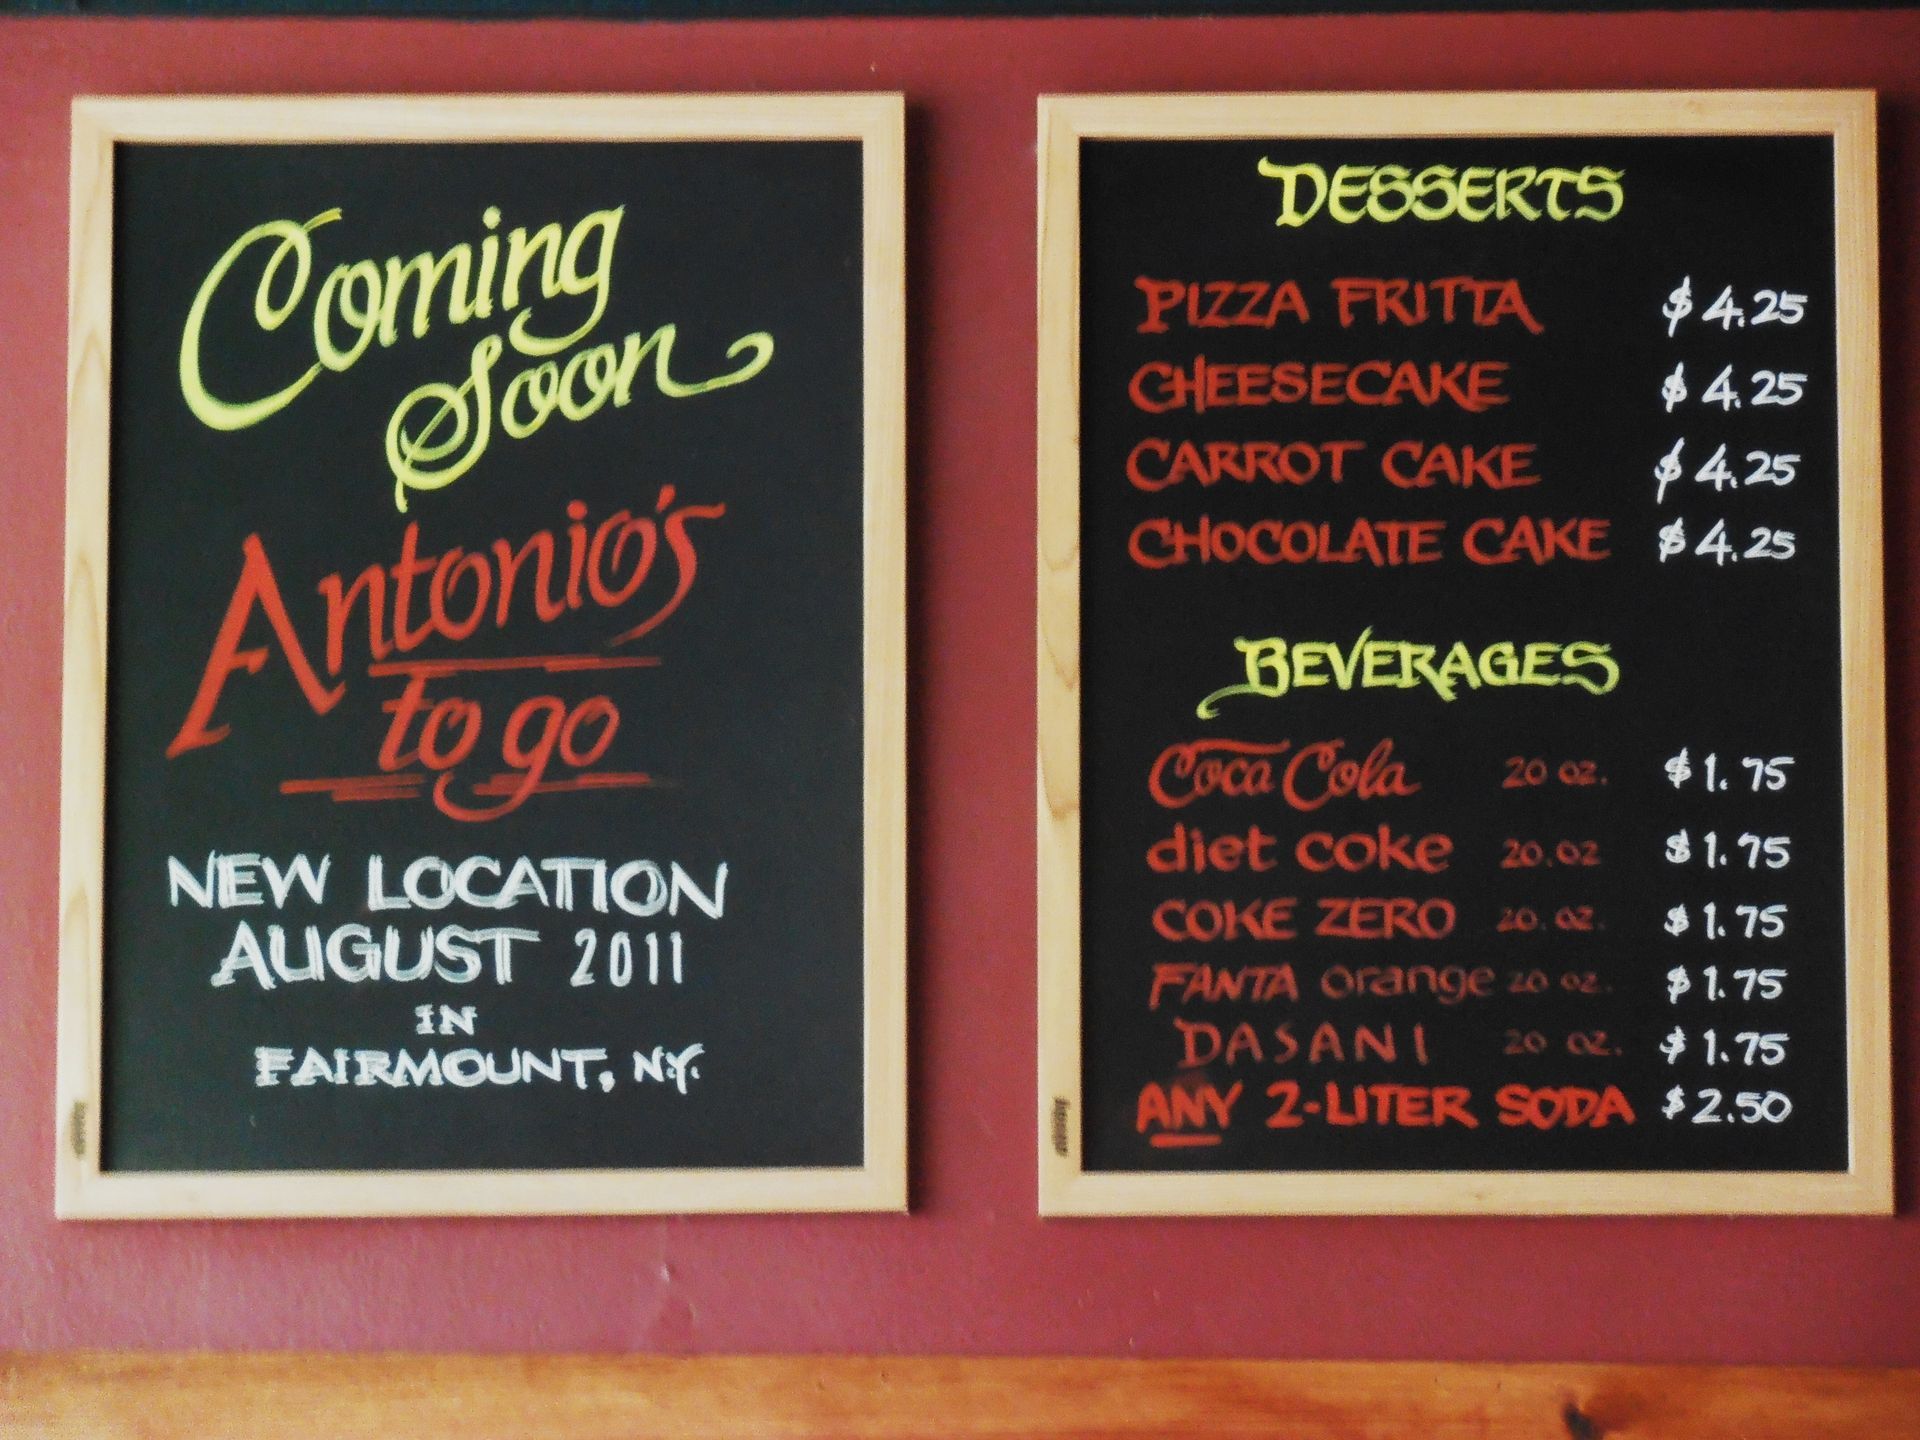 Coming
Soon
Antonio's
to go
NEW LOCATION
AUGUST 2011
IN
FAIRMOUNT, N.Y.
DESSERTS
PIZZA FRITTA $4.25
CHEESECAKE $4.25
CARROT CAKE $4.25
CHOCOLATE CAKE $4.25
BEVERAGES
Coca Cola 20 oz. $1.75
diet coke 20.oz $1.75
COKE ZERO 20.oz. $1.75
FANTA orange 20 oz. $1.75
DASANI 20 oz. $1.75
ANY 2-LITER SODA $2.50